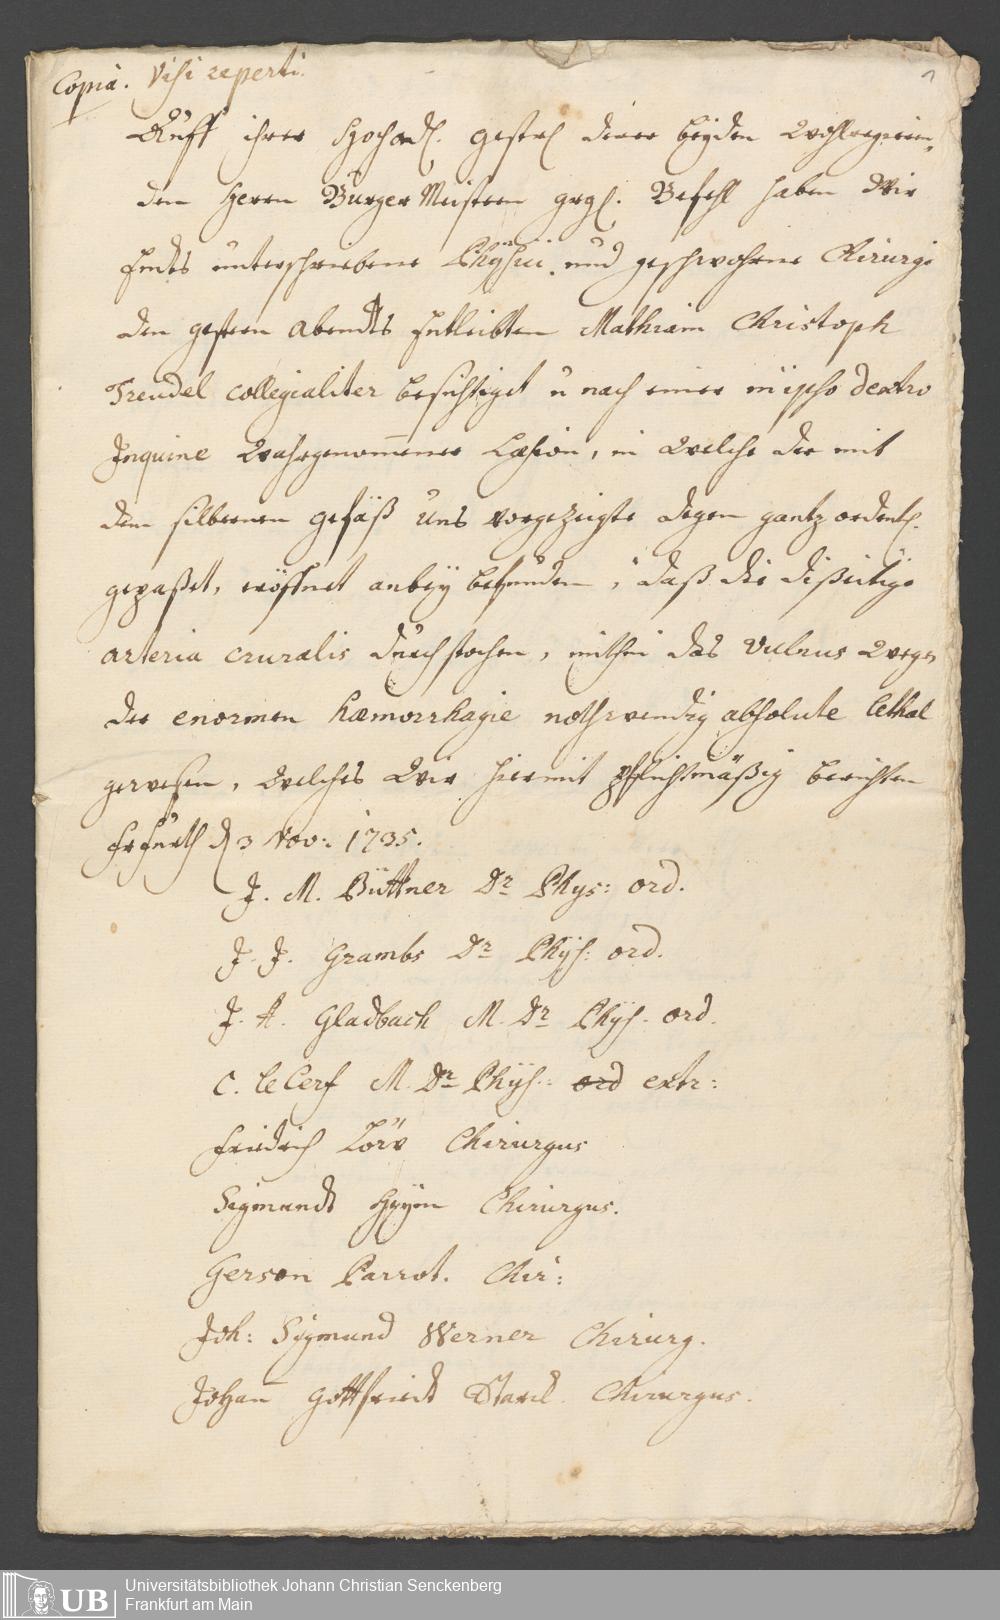 Copia. Visi reperti.
1
Auff ihrer HochAdl. gestrl. derer beyden Wohlregieren„
den Herren BurgerMeistern grgl. Befehl haben Wir
Endts unterschriebene Physici und geschwohrne Chirurgi
den gestern Abendts Entleibten Mathiam Christoph
Treudel collegialiter besichtiget u nach einer in ipso dextro
Inquine Wahrgenom̅ener Læsion, in Welche der mit
dem silbernen gefäß Uns vorgezeigte degen gantz ordentl.
gepaßet, eröffnet anbey befunden, daß die dißeitige
arteria cruralis durchstochen, mithin das Vulnus Wegen
der enormen hæmorrhagie nothwendig absolute lethal
gewesen, Welches Wir hiermit pflichtmäßig berichten
Frfurth d 3 Nov: 1735.
J. M. Büttner Dr Phys: ord.
J. J. Grambs Dr Phÿs: ord.
J. A. Gladbach M. Dr Phÿs. ord.
C. le Cerf M. Dr Phÿs: ord extr:
Friedrich Löw Chirurgus
Sigmundt Heym Chirurgus.
Gerson Parrot. Chir:
Joh: Sigmund Werner Chirurg.
Johan̅ Gottfriedt Chirurgus.
UB
Universitätsbibliothek Johann Christian Senckenberg
Frankfurt am Main